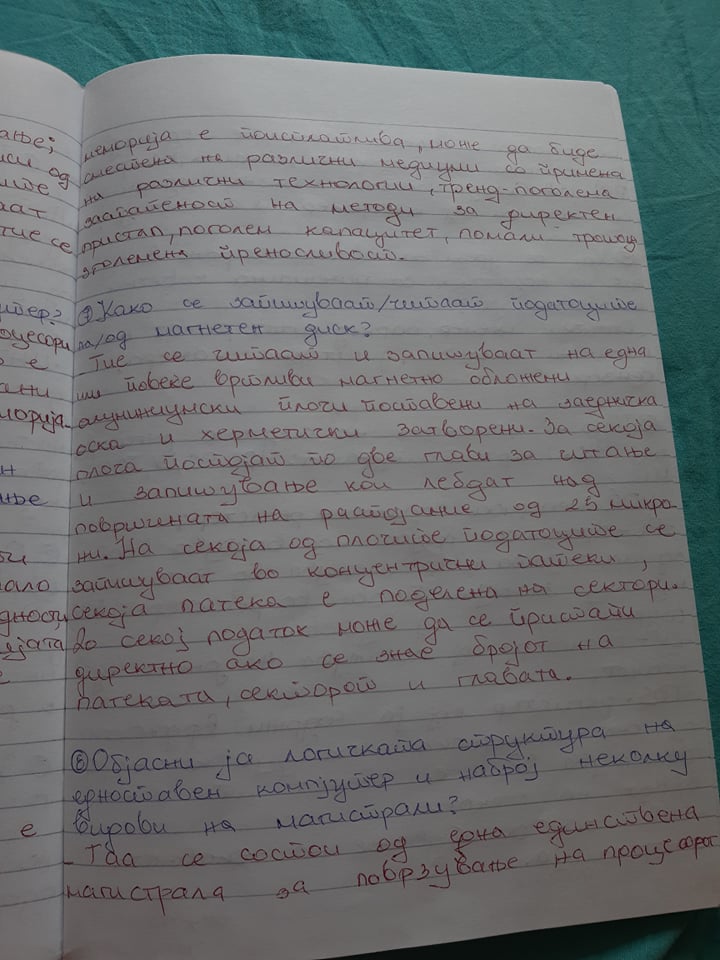 ање;
иси од
аат
тие се
меморија е поистлатлива, може да биде
сместена на различни медиуми со примена
на различни технологии, тренд-поголема
застапеност на методи за директен
пристап, поголем капацитет, помали трошоц
зголемена преносливост.
⑦ Како се запишуваат/читаат податоците
на/од магнетен диск?
Тие се читаат и запишуваат на една
или повеќе вртливи магнетно обложени
алуминиумски плочи поставени на заедничка
оска и херметички затворени. За секоја
плоча постојат по две глави за читање
и запишување кои лебдат над
површината на растојание од 25 микро-
ни. На секоја од плочите податоците се
запишуваат во концентрични патеки,
секоја патека е поделена на сектори.
До секој податок може да се пристапи
директно ако се знае бројот на
патеката, секторот и главата.
⑧ Објасни ја логичката структура на
едноставен компјутер и наброј неколку
видови на магистрали?
- Таа се состои од една единствена
магистрала за поврзување на процесорот
јтер?
оцесори
е
ани
морија.
н
ње
би
мало
дност
ејата
е
е